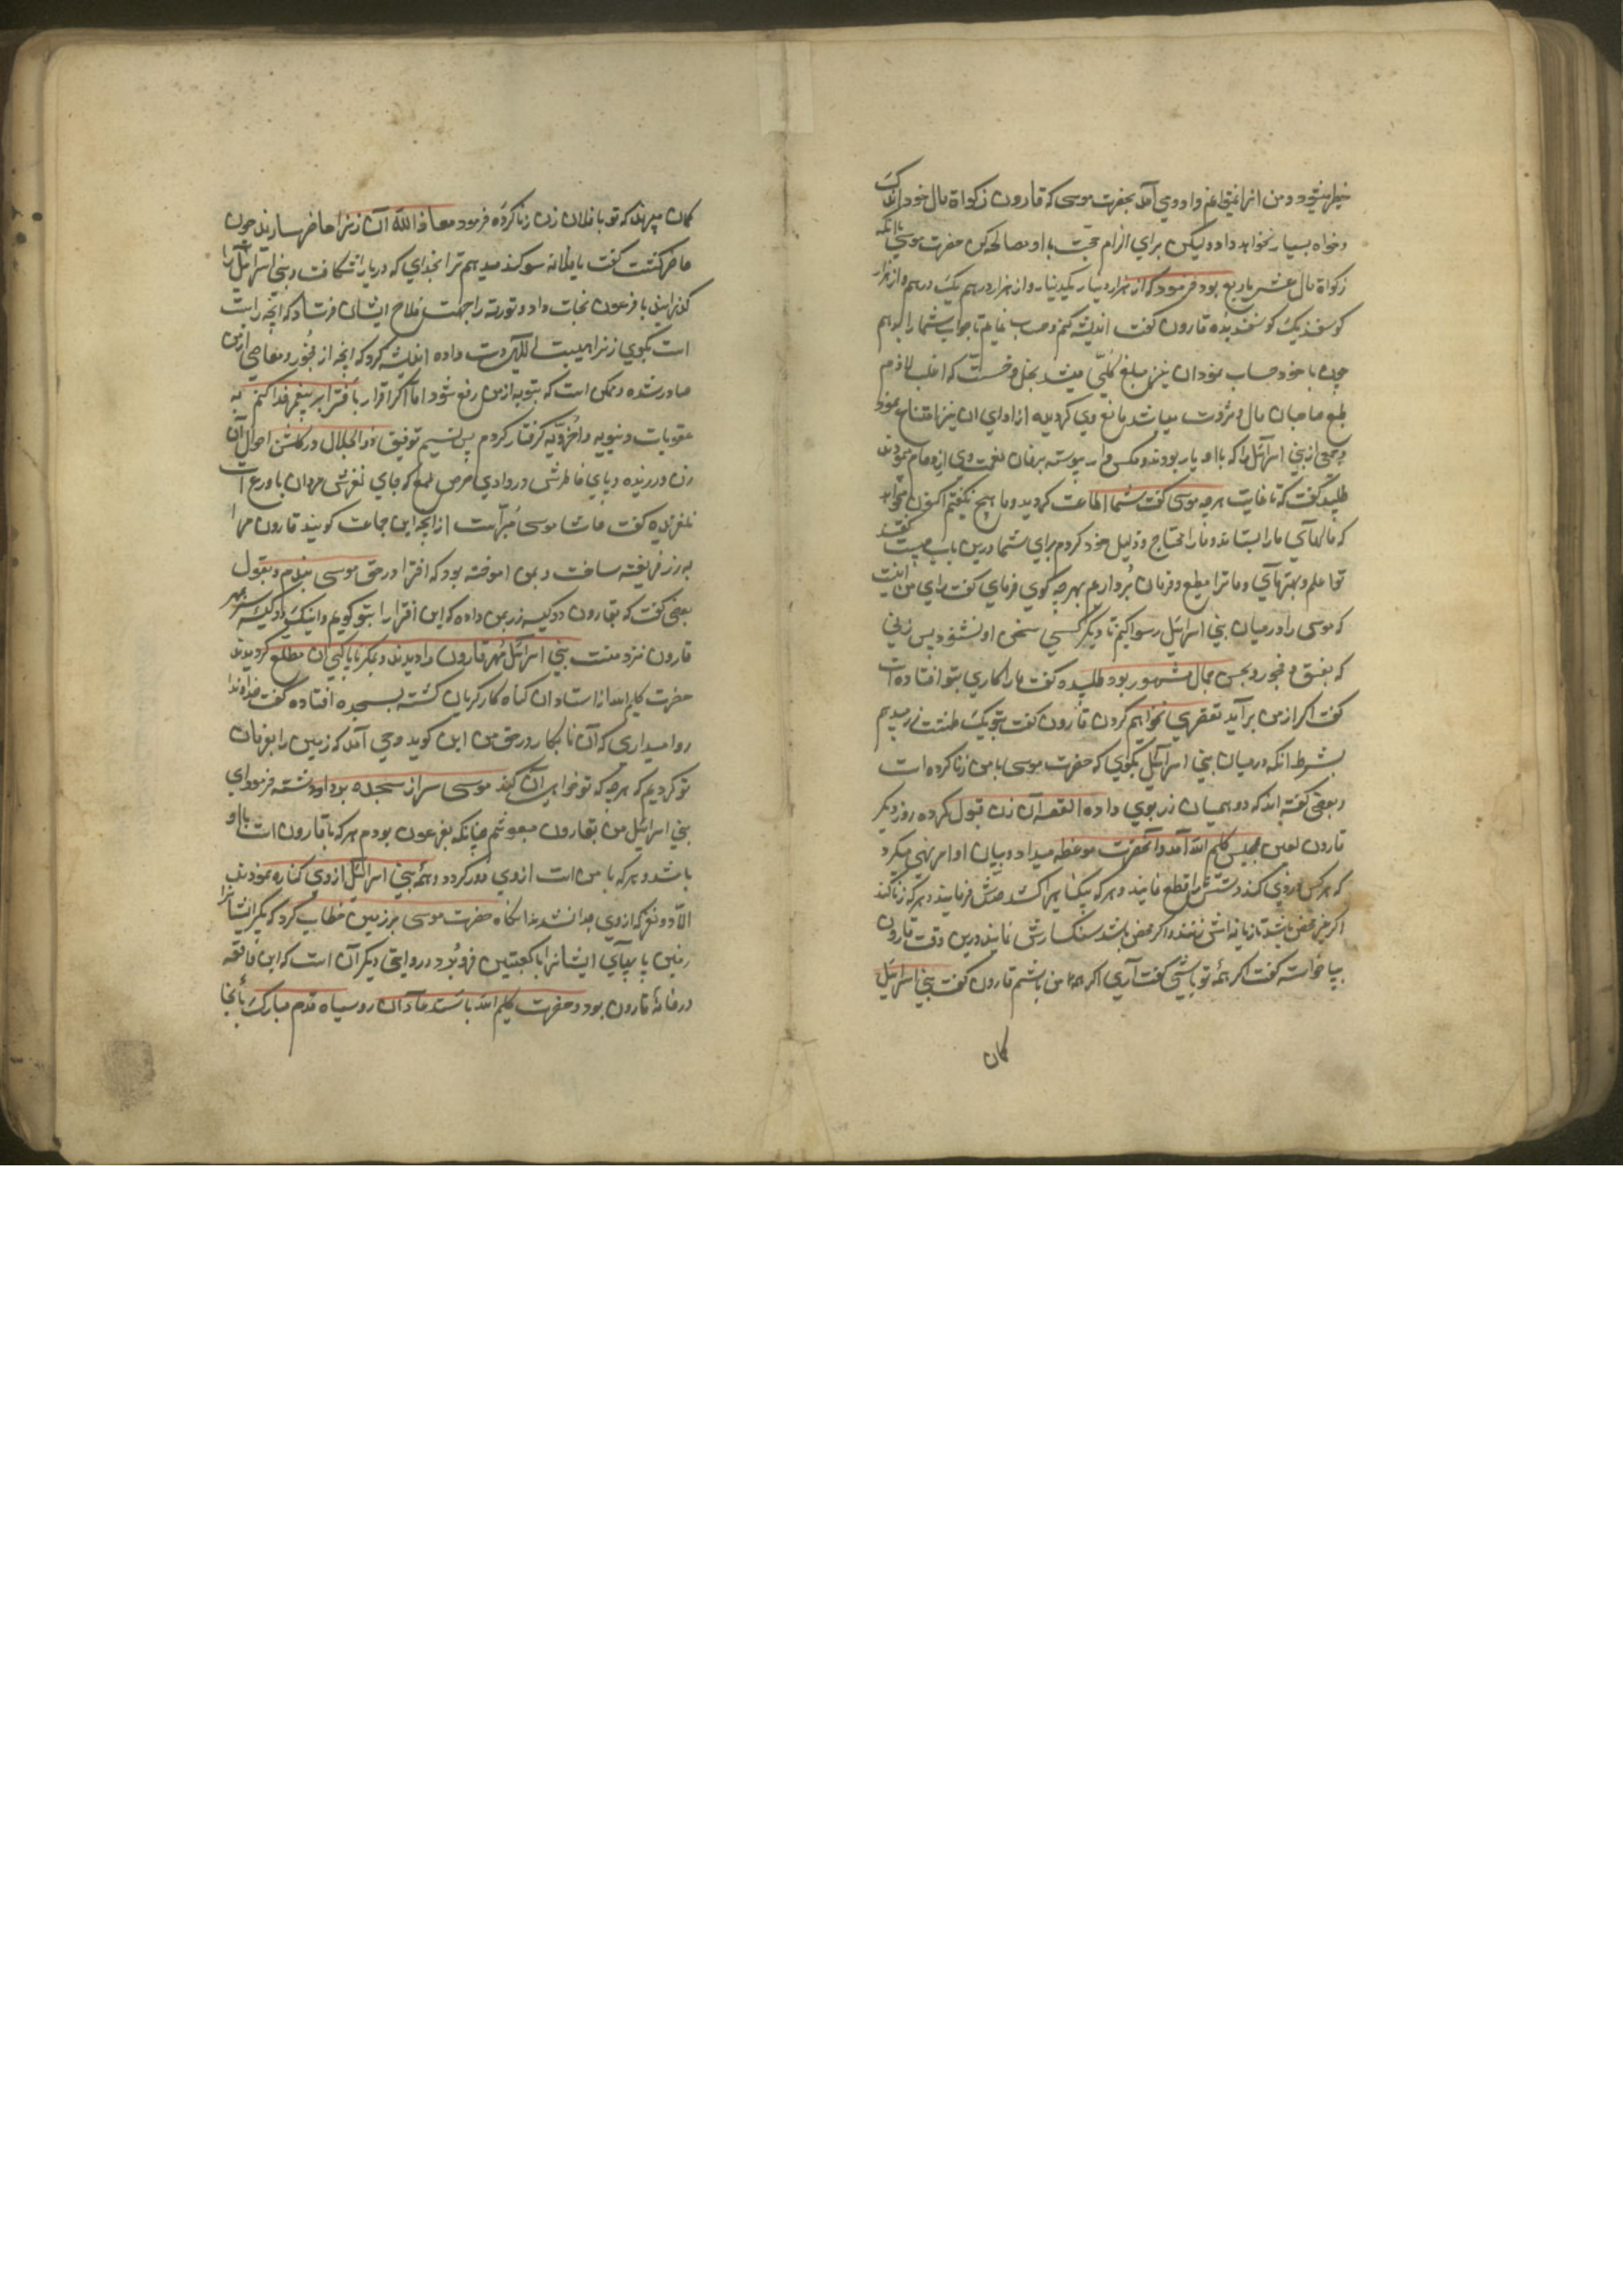 میطرمیشود و من انرا غیق اعنم وادوی آمد بحضرت موسی که قارون زکواة مال خود اندک
و خواه بسیار نخواهد داد ولیکن برای الزام حجت با او مصالحه کن حضرت موسی باانکه
زکواة مال عشر یا ربع بود فرمود که از هزار دینار یکدینار و از هزار درهم یک درهم و از هزار
کوسفند یک کوسفند بده قارون کفت اندیشه کنم و حساب نمایم تا جواب شما را بدهم
چون با خود حساب نمود ان نیز مبلغ کلی میشد بخل و خست که اغلب لازم
طبع صاحبان مال و ثروت میباشد مانع وی کردیده از ادای ان نیز امتناع نمود
و جمعی از بنی اسرآئیل را که با او یار بودند و مکس وار پیوسته برخان نعمت وی ازدحام نمودند
طلبید کفت که تا غایت هرچه موسی کفت شما اطاعت کردید و ما هیچ نکفتیم اکنون میخواهد
که مالهآی ما را بستاند و ما را محتاج و ذلیل خود کردم برای شما درین باب چیست کفتند
تو اعلم و بهتر مآی و ما ترا مطیع و فرمان برداریم بهرچه کوی فرمای کفت رای من اینست
که موسی را در میان بنی اسرائیل رسوا کنیم تا دیکر کسی سخن او نشنود پس زنی
که بفسق و فجور و بحسن جمال مشهور بود طلبیده کفت ما را کاری بتو افتاده است
کفت اکر از من برآید تقصیری نخواهم کردن قارون کفت بتو یک طشت زر میدهم
بشرط انکه در میان بنی اسرآئیل بکوی که حضرت موسی با من زنا کرده است
و بعضی کفته اند که دو همیان زر بوی داده القصه آن زن قبول کرده روز دیکر
قارون لعین مجلس کلیم الله آمد و آنحضرت موعظه میداد و بیان اوامر نهی میکرد
که هر کس دزدی کند دستش را قطع نمایند و هرکه بیکناهیرا کشد قتلش فرمایند و هرکه زنا کند
اکر غیر محصن باشد تازیانه اش زنند و اکر محصن باشد سنکسارش نمایند درین وقت قارون
بپا خواست کفت اکر همه تو باشی کفت آری اکر همه من باشم قارون کفت بنی اسرائیل
کمان
کمان میبرند که تو با فلان زن زنا کرده فرمود معاذ الله آن زنرا حاضر سازند چون
حاضر کشت کفت یا فلانه سوکند میدهم ترا بخدای که دریا را شکافت و بنی اسرائیل را
کذرانید با فرعون نجات داد و توریة را جهت فلاح ایشان فرستاد که انچه راست
است بکوی زنرا هیبت الهی دست داده اندیشه کرد که انچه از فجور و معاصی از من
صادر شده و ممکن است که بتوبه از من رفع شود اما اکر اقرار بافترا بر پیغمبر خدا کنم به
عقوبات دنیویه و اخرویه کرفتار کردم پس نسیم توفیق ذو الجلال در کلشن احوال آن
زن وزیده و پای خاطرش در وادی حرص طمع که جای لغزش مردان باورع است
نلغزیده کفت حاشا موسی مبرآست از انچه این جماعت کویند قارون مرا
به زر فریفته ساخت و بمن اموخته بود که افترا در حق موسی بندم و بقول
بعضی کفت که بقارون دو کیسه زر بمن داده که این افترا را بتو کویم و اینک دو کیسه بسر بمهر
قارون نزد منست بنی اسرآئیل مهر قارون را دیدند و بمکر ناپاکی ان مطلع کردیدند
حضرت کلیم الله از استادن کناه کار کریان کشته بسجده افتاده کفت خداوندا
روا میداری که آن نابکار در حق من این کوید وحی آمد که زمین را بفرمان
تو کردیم که هرچه که تو خواهی آن کند موسی سر از سجده برداشته فرمود ای
بنی اسرائیل من بقارون مبعوثم چنانکه بفرعون بودم هرکه با قارون است با او
باشد و هرکه با من است از وی دور کردد و همه بنی اسرائیل از وی کناره نمودند
الا دو نفر که از وی جدا نشدند انکاه حضرت موسی بر زمین خطاب کرد که بکیر ایشانرا
زمین پا بپآی ایشانرا تا کعبتین فرو برد و در روایتی دیکر آن است که این واقعه
در خانهٔ قارون بود و حضرت کلیم الله باستدعاء آن رو سیاه قدم مبارک بآنجا